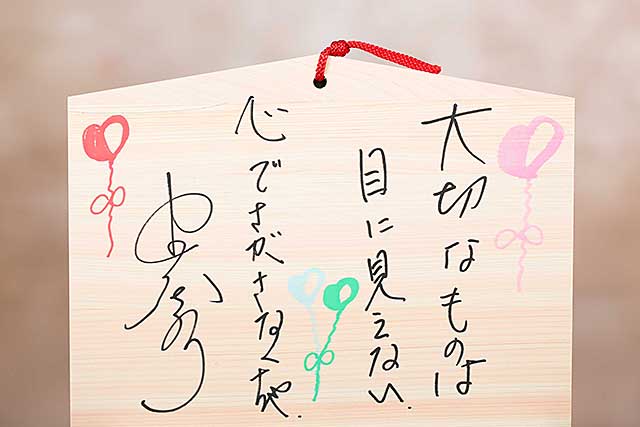 大切なものは
目に見えない.
心でさがさなくちゃ.